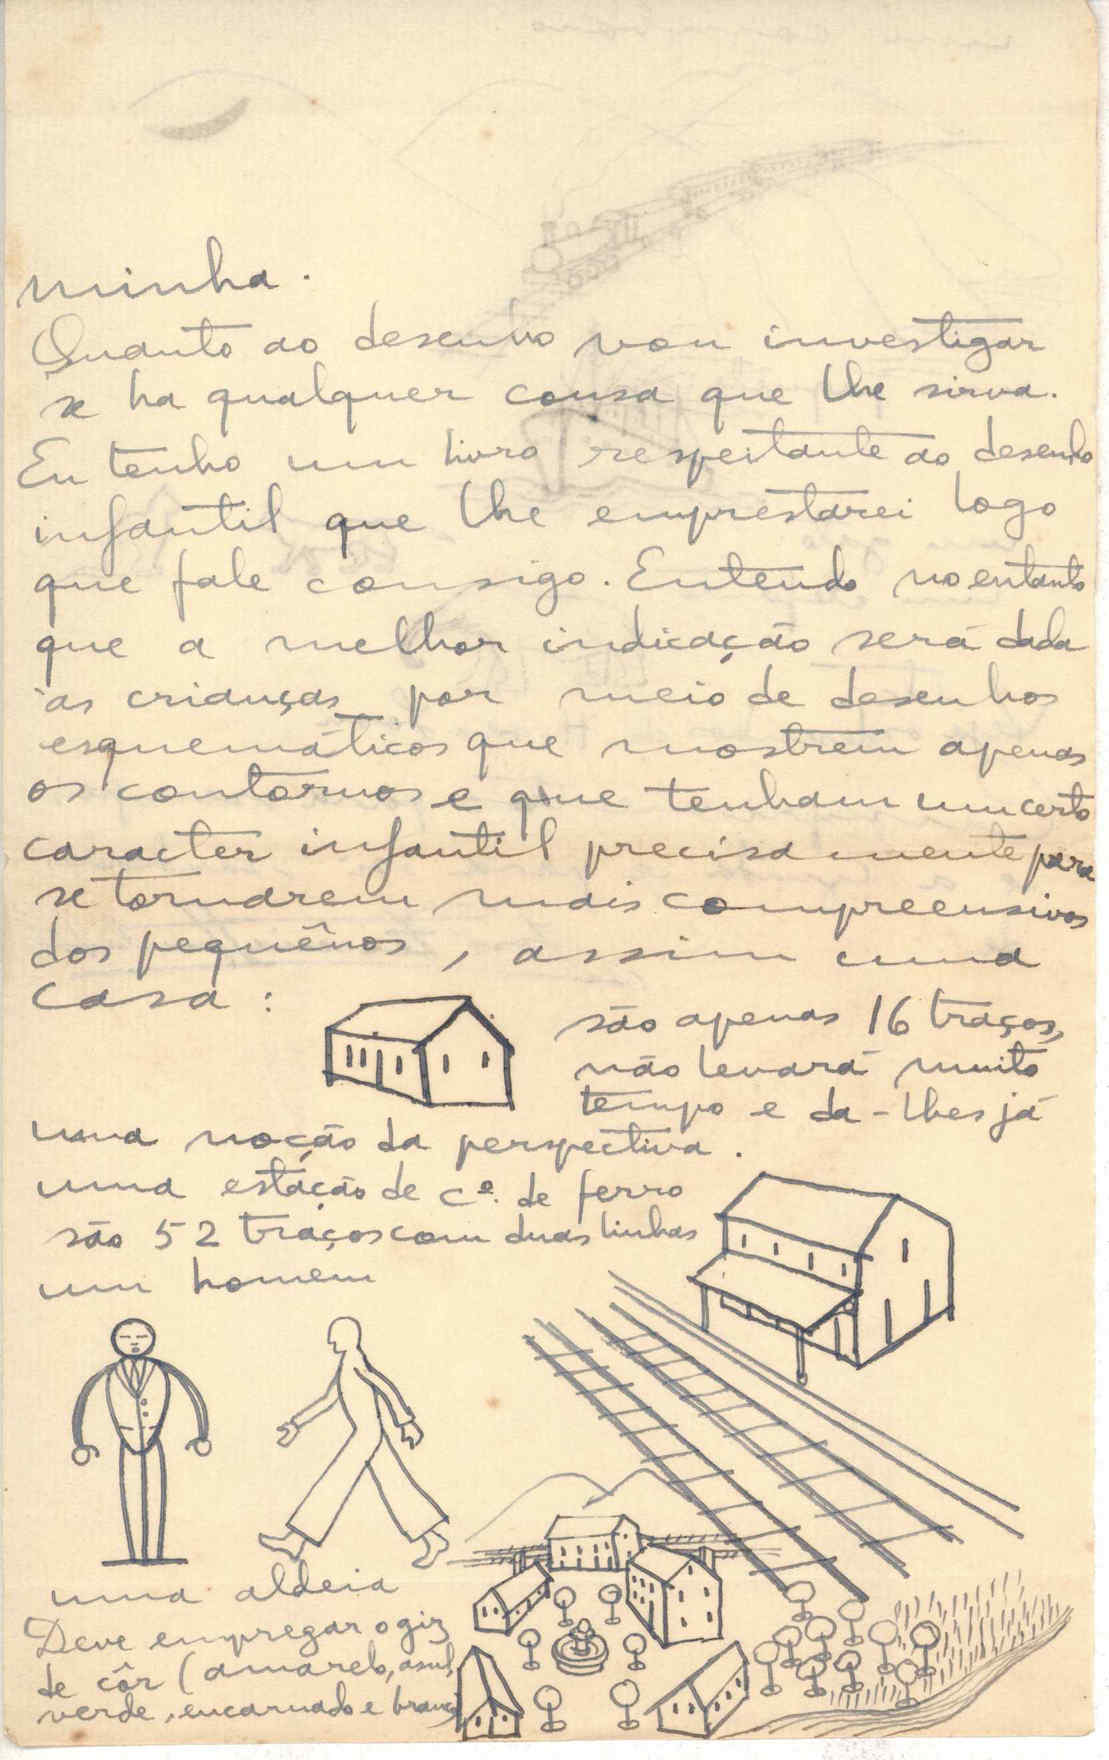 minha.
Quanto ao desenho vou investigar
se ha qualquer cousa que lhe sirva.
Eu tenho um livro respeitante ao desenho
infantil que lhe emprestarei logo
que fale consigo. Entendo no entanto
que a melhor indicação será dada
ás crianças por meio de desenhos
esquemáticos que mostrem apenas
os contornos e que tenham um certo
caracter infantil precisamente para
se tornarem mais compreensivos
dos pequênos, assim uma
casa:
são apenas 16 traços,
não levará muito
tempo e da-lhes já
uma noção da perspectiva.
uma estação de cº. de ferro
são 52 traços com duas linhas
um homem
uma aldeia
Deve empregar o giz
de côr (amarelo, asul,
verde, encarnado e branco)